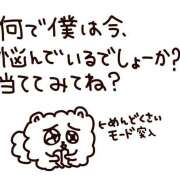 何で僕は今、
悩んでいるでしょーか?
当ててみてね?
←めんどくさい
モード突入